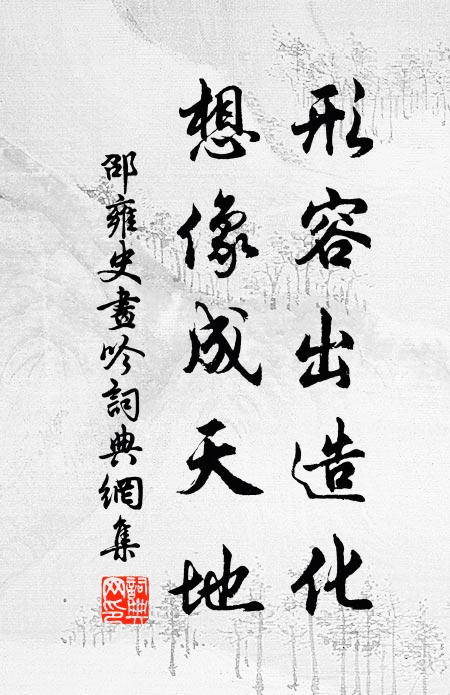 形容出造化
想像成天地
邵雍史畫吟詞典網集
詞典
网